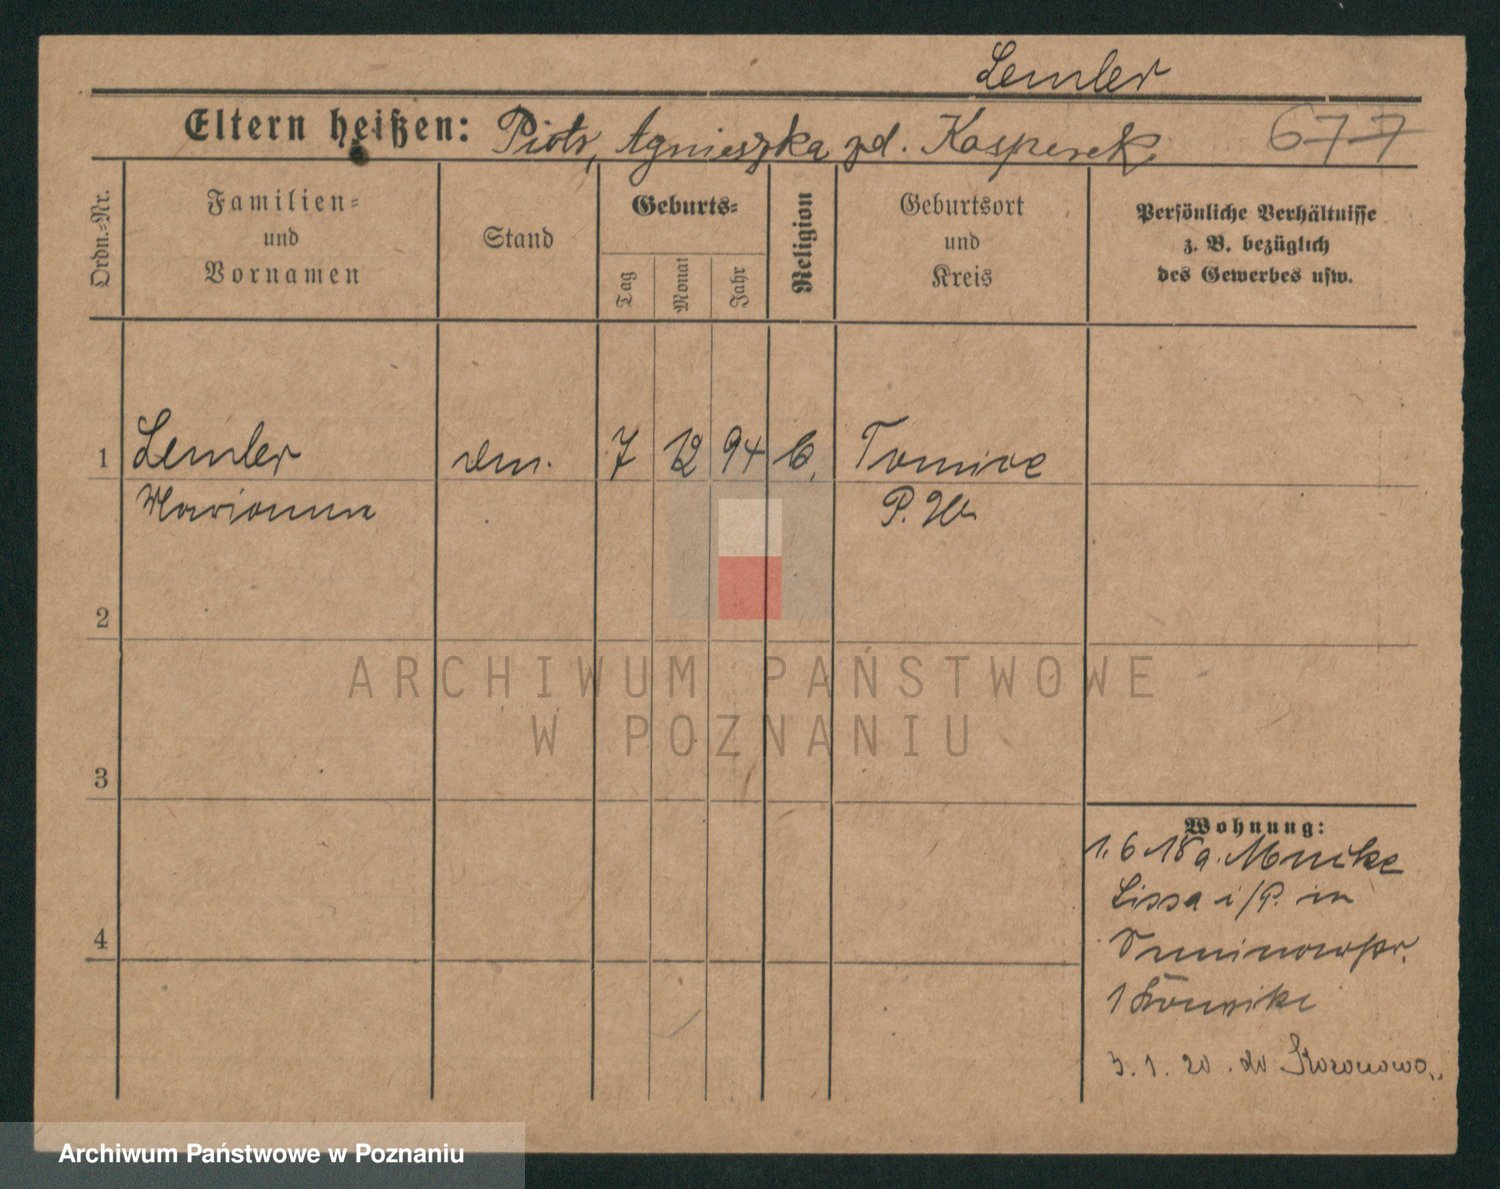 Lemler
Eltern heißen: Piotr, Agnieszka zd. Kasperek
677
Ordn.-Nr.
Familien-
und
Vornamen
Stand
Geburts-
Tag
Monat
Jahr
Religion
Geburtsort
und
Kreis
Persönliche Verhältnisse
z. B. bezüglich
des Gewerbes usw.
1 Lemler 7 12 94 Tomice
Marianna P. W.
2
ARCHIWUM PAŃSTWOWE
W POZNANIU
3
Wohnung:
1. 6 18 a.
Lissa i/P. in
4
3. 1. 20
Archiwum Państwowe w Poznaniu